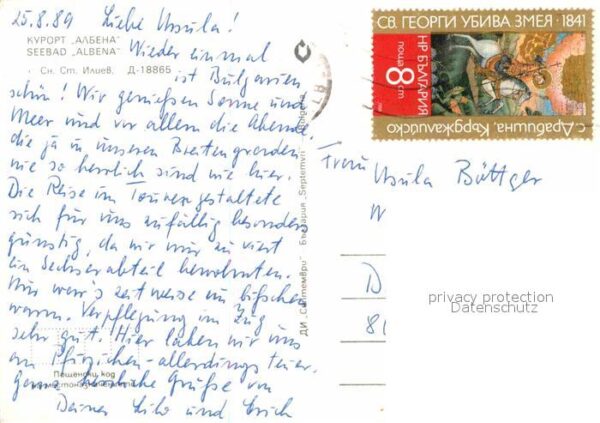 25.8.89 Liebe Ursula!
КУРОРТ „АЛБЕНА"
SEEBAD „ALBENA"
Сн. Ст. Илиев. Д-18865
Wieder einmal
ist Bulgarien
schön! Wir genießen Sonne und
Meer und vor allem die Abende,
die ja in unseren Breitengraden
nie so herrlich sind wie hier.
Die Reise im gestaltete
sich für uns zufällig besonders
günstig, da wir nur zu viert
ein Sechserabteil bewohnten.
Nur war's zeitweise im bißchen
warm. Verpflegung im Zug
sehr gut. Hier laben wir uns
an Pfirsichen - allerdings teuer.
Пощенски код
Herzliche Grüße von
Deinen Lilo und Erich
ДИ „Септември" България „Septemvri"
СВ. ГЕОРГИ УБИВА ЗМЕЯ · 1841
НР БЪЛГАРИЯ
поща 8 ст
с. Драбишна, Кърджалийско
Frau Ursula Böttger
W
D
81
privacy protection
Datenschutz